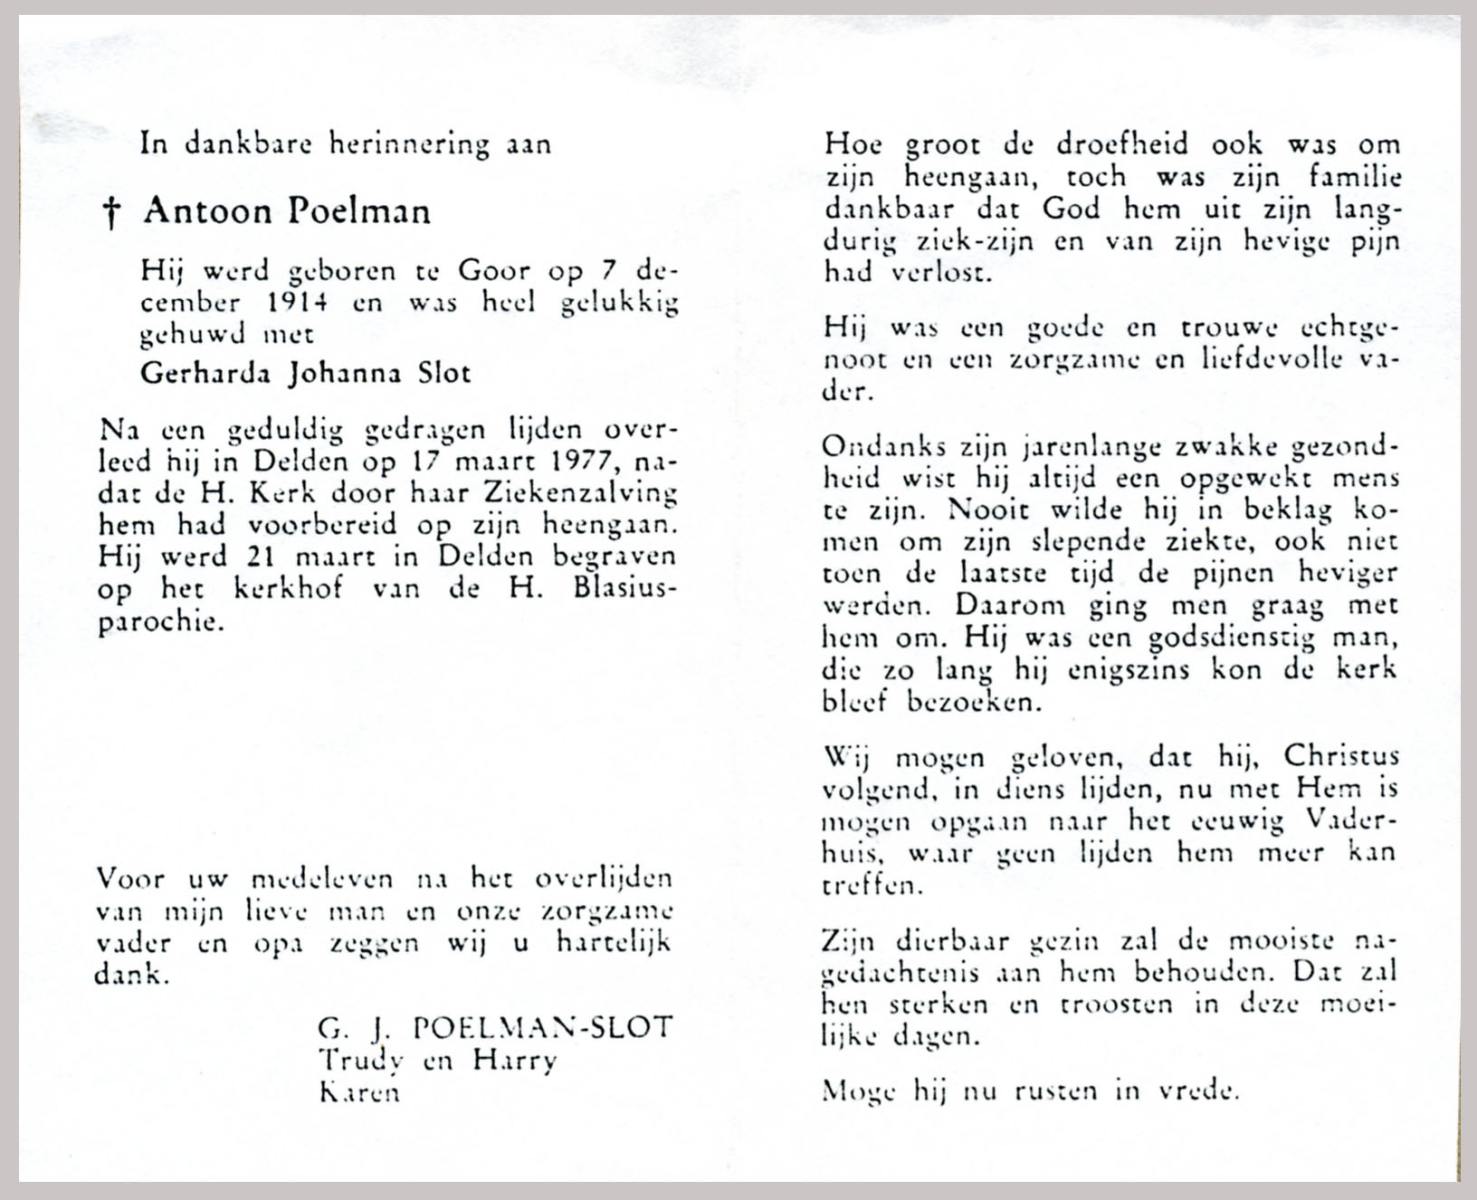 In dankbare herinnering aan
† Antoon Poelman
Hij werd geboren te Goor op 7 de-
cember 1914 en was heel gelukkig
gehuwd met
Gerharda Johanna Slot
Na een geduldig gedragen lijden over-
leed hij in Delden op 17 maart 1977, na-
dat de H. Kerk door haar Ziekenzalving
hem had voorbereid op zijn heengaan.
Hij werd 21 maart in Delden begraven
op het kerkhof van de H. Blasius-
parochie.
Voor uw medeleven na het overlijden
van mijn lieve man en onze zorgzame
vader en opa zeggen wij u hartelijk
dank.
G. J. POELMAN-SLOT
Trudy en Harry
Karen
Hoe groot de droefheid ook was om
zijn heengaan, toch was zijn familie
dankbaar dat God hem uit zijn lang-
durig ziek-zijn en van zijn hevige pijn
had verlost.
Hij was een goede en trouwe echtge-
noot en een zorgzame en liefdevolle va-
der.
Ondanks zijn jarenlange zwakke gezond-
heid wist hij altijd een opgewekt mens
te zijn. Nooit wilde hij in beklag ko-
men om zijn slepende ziekte, ook niet
toen de laatste tijd de pijnen heviger
werden. Daarom ging men graag met
hem om. Hij was een godsdienstig man,
die zo lang hij enigszins kon de kerk
bleef bezoeken.
Wij mogen geloven, dat hij, Christus
volgend, in diens lijden, nu met Hem is
mogen opgaan naar het eeuwig Vader-
huis, waar geen lijden hem meer kan
treffen.
Zijn dierbaar gezin zal de mooiste na-
gedachtenis aan hem behouden. Dat zal
hen sterken en troosten in deze moei-
lijke dagen.
Moge hij nu rusten in vrede.